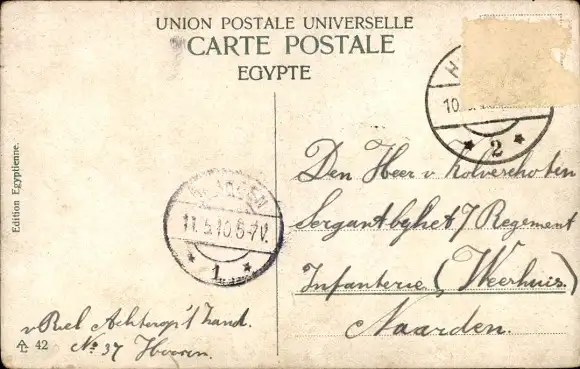 UNION POSTALE UNIVERSELLE
CARTE POSTALE
EGYPTE
H
10
2
Den Heer v Kolverschoten
Sergant by het 7 Regement
Infanterie (Weerhuis.)
Naarden.
NAARDEN
11.5.10.6-7V.
1
v Riel Achterop 't Zand.
No 37 Hoorn.
Edition Egyptienne.
42